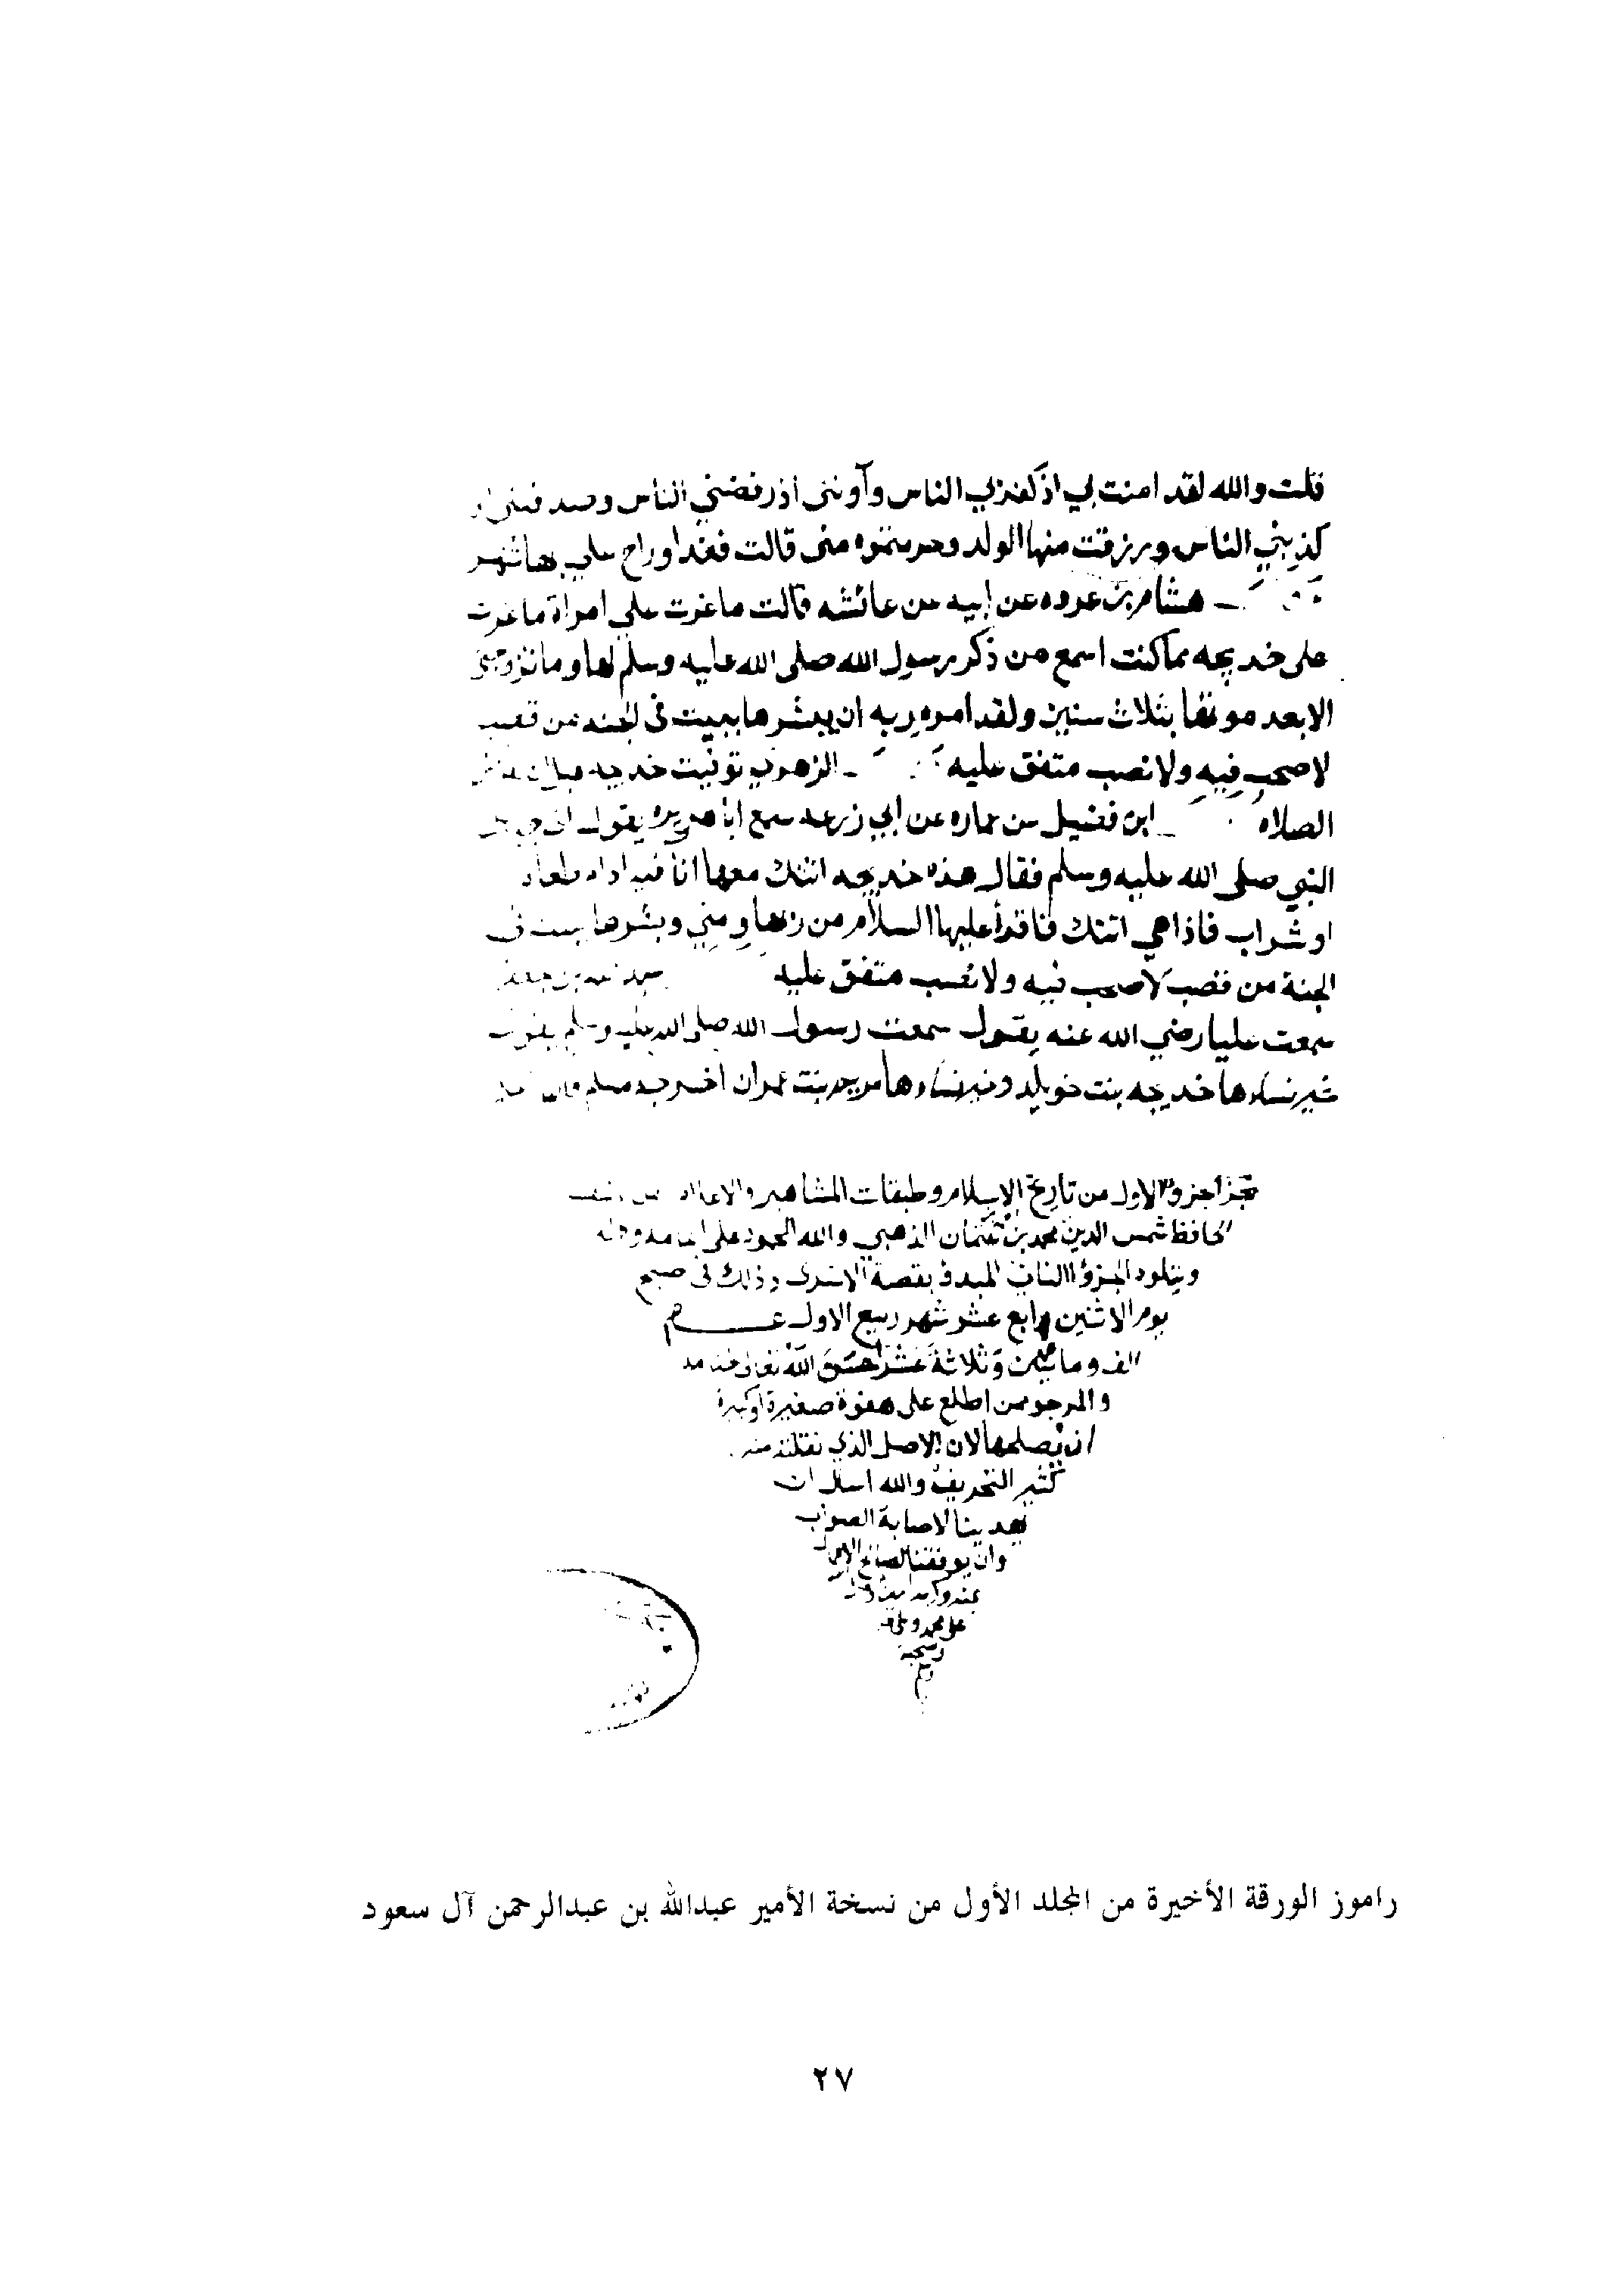 قلت والله لقد امنت بي اذ كفر بي الناس وآوتنى اذ رفضني الناس وصدقتنى اذ
كذبني الناس ورزقت منها الولد وحرمتموه منى قالت فغدا وراح علي بها شهر
هشام بن عروه عن ابيه عن عائشه قالت ما غرت علي امراة ما غرت
على خديجه مما كنت اسمع من ذكر رسول الله صلى الله عليه وسلم لها وما تزوجنى
الا بعد موتها بثلاث سنين ولقد امره ربه ان يبشرها ببيت فى الجنه من قصب
لا صخب فيه ولا نصب متفق عليه الزهري توفيت خديجه
الصلاه ابن فضيل عن عماره عن ابي زرعه سمع ابا هريره يقول
النبي صلى الله عليه وسلم فقال هذه خديجه اتتك معها انا فيه ادام طعام
او شراب فاذا هي اتتك فاقرأ عليها السلام من ربها ومني وبشرها ببيت فى
الجنة من قصب لا صخب فيه ولا نصب متفق عليه عبد الله بن جعفر
سمعت عليا رضي الله عنه يقول سمعت رسول الله صلى الله عليه وسلم يقول
خير نساءها خديجه بنت خويلد وخير نساءها مريم بنت عمران اخرجه مسلم
نجز الجزؤ الاول من تاريخ الاسلام وطبقات المشاهير والاعلام
الحافظ شمس الدين محمد بن عثمان الذهبي والله المحمود على
ويتلوه الجزؤ الثاني المبدؤ بقصة الاسرى وذلك فى صبح
يوم الاثنين رابع عشر شهر ربيع الاول عـــام
الف ومائتين وثلاثة عشر احسن الله تعالى
والمرجو ممن اطلع على هفوة صغيرة او كبيرة
ان يصلحها لان الاصل الذي نقلته منه
كثير التحريف والله اسال ان
يهدينا لاصابة الصواب
وان يوفقنا لصالح
بمنه وكرمه
على محمد وعلى
وصحبه
راموز الورقة الأخيرة من المجلد الأول من نسخة الأمير عبدالله بن عبدالرحمن آل سعود
٢٧